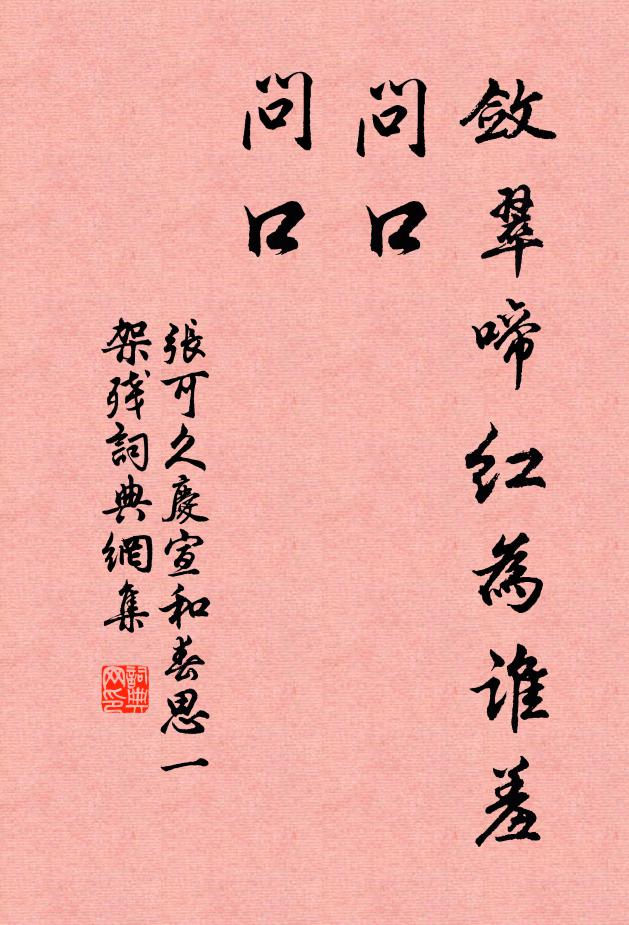 斂翠啼紅為誰羞
問口
問口
張可久慶宣和春思一
架殘詞典網集
詞典網印